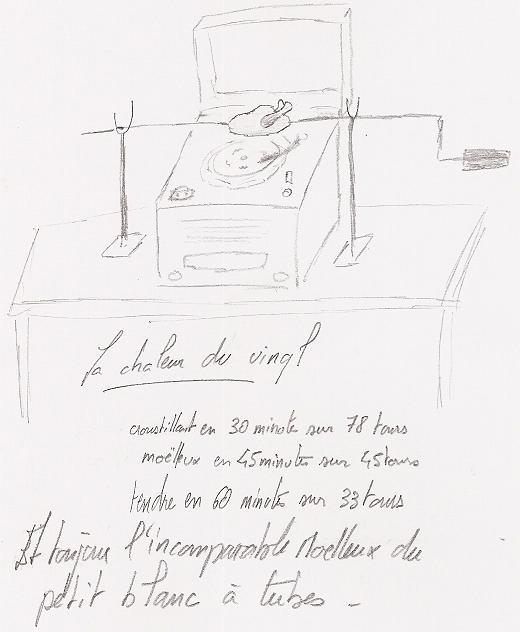 La chaleur du vinyl
croustillant en 30 minutes sur 78 tours
moëlleux en 45 minutes sur 45 tours
tendre en 60 minutes sur 33 tours
Et toujours l'incomparable Moelleux du
petit blanc à tubes -